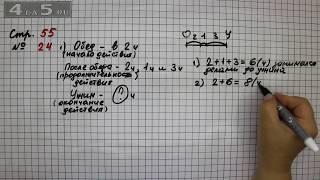 4BDS
Стр. 55
№ 24
1) Обед - в 2 ч
(начало действия)
После обеда - 2 ч, 1 ч и 3 ч
(продолжительность
действия)
Ужин - ? ч
(окончание
действия)
О 2 1 3 У
1) 2+1+3=6(ч) занимался
делами до ужина
2) 2+6=8(